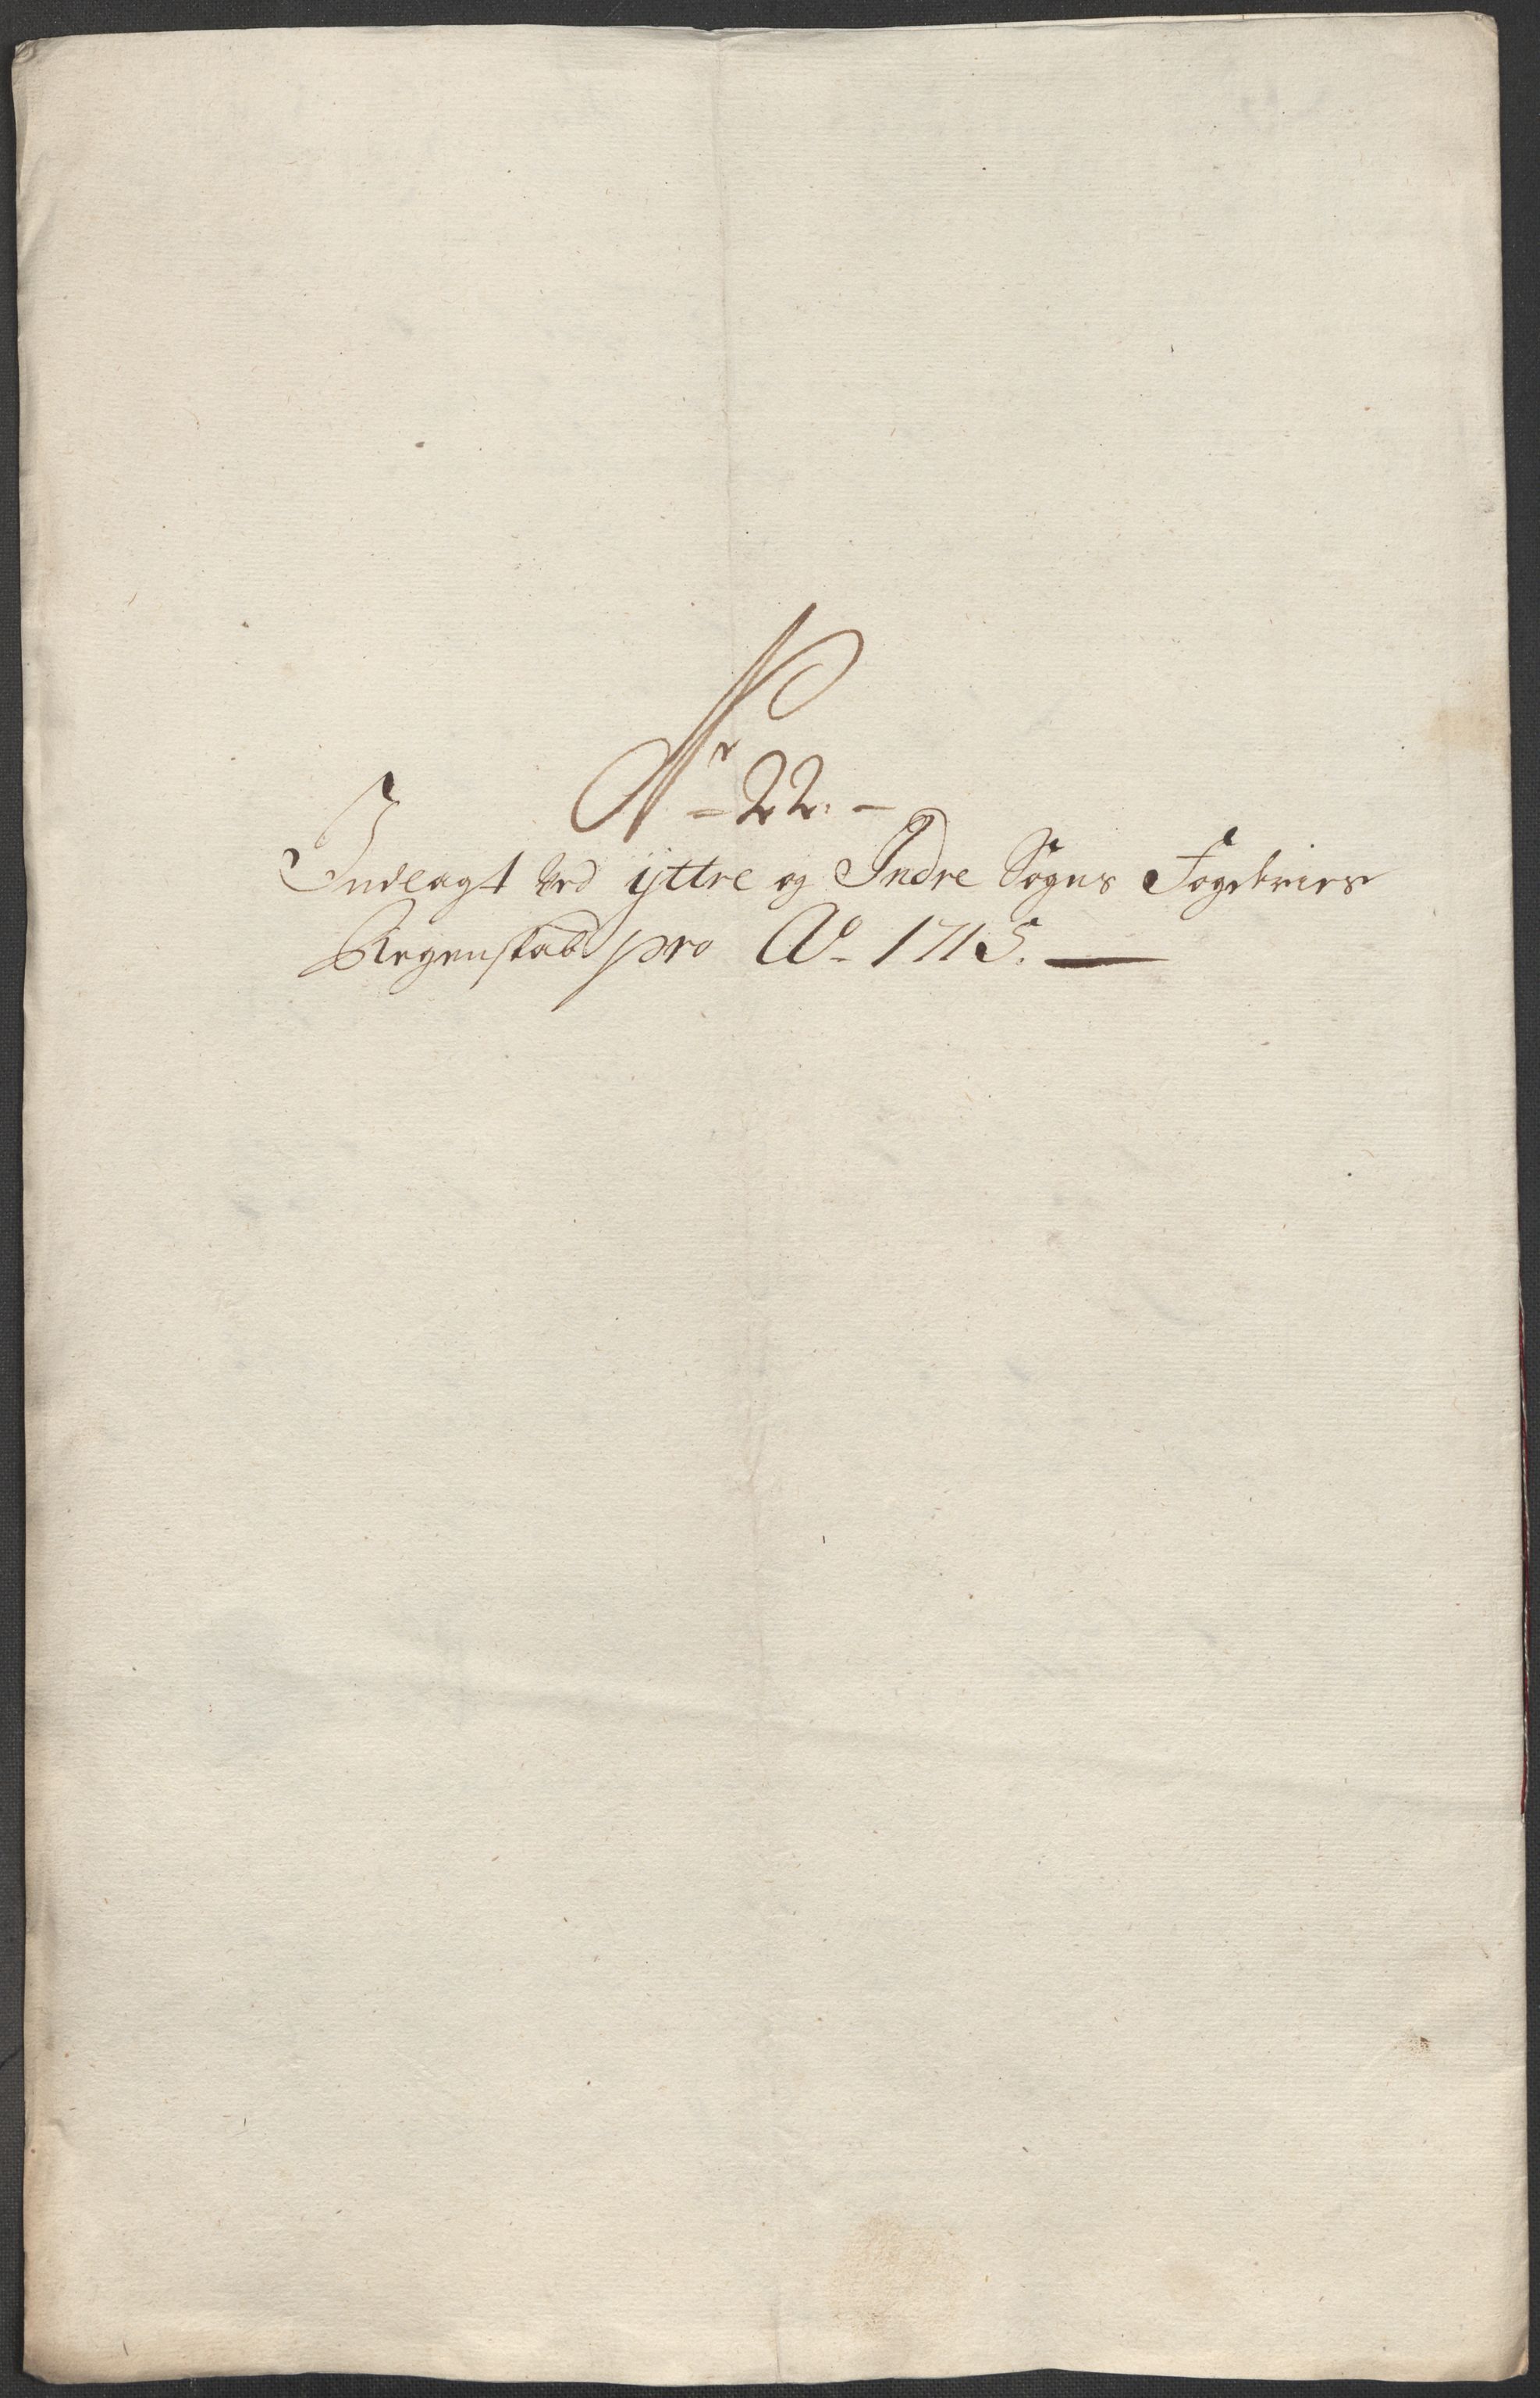 Nr 22. —
Indlagt Ved ÿttre og Indre Sogns Fogderies
Regenskab pro Ao 1715. —